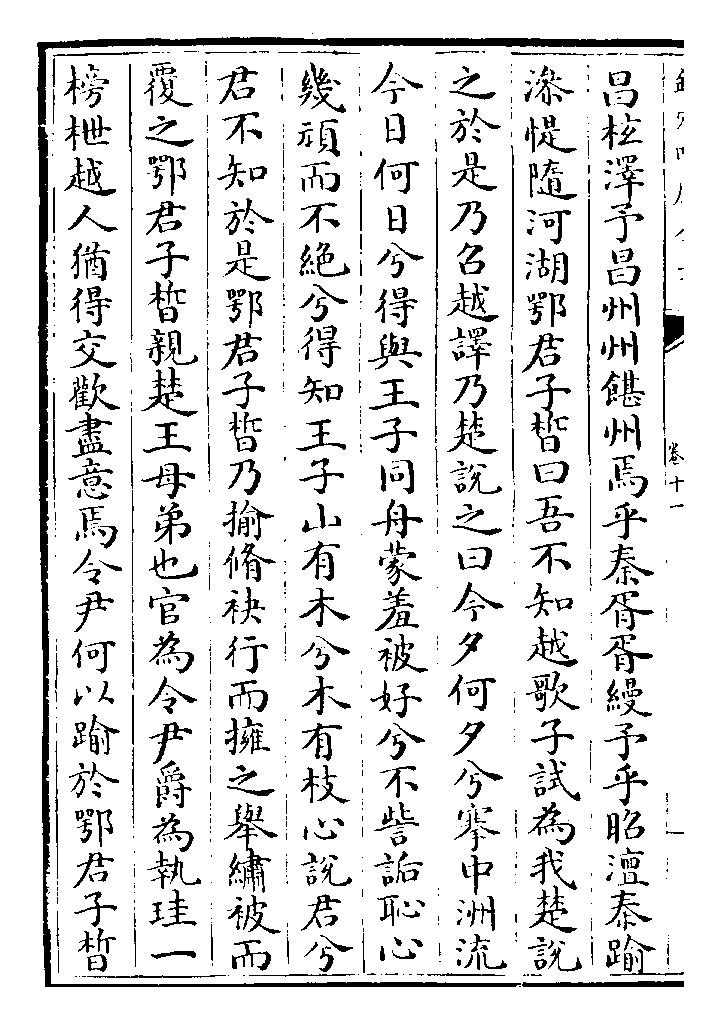 昌枑澤予昌州州𩜱州焉乎秦胥胥縵予乎昭澶秦踰
滲惿隨河湖鄂君子晳曰吾不知越歌子試為我楚說
之於是乃召越譯乃楚說之曰今夕何夕兮搴中洲流
今日何日兮得與王子同舟蒙羞被好兮不訾詬恥心
幾頑而不絶兮得知王子山有木兮木有枝心說君兮
君不知於是鄂君子晳乃揄脩袂行而擁之舉繡被而
覆之鄂君子晳親楚王母弟也官為令尹爵為執珪一
榜枻越人猶得交歡盡意焉令尹何以踰於鄂君子晳
卷十一